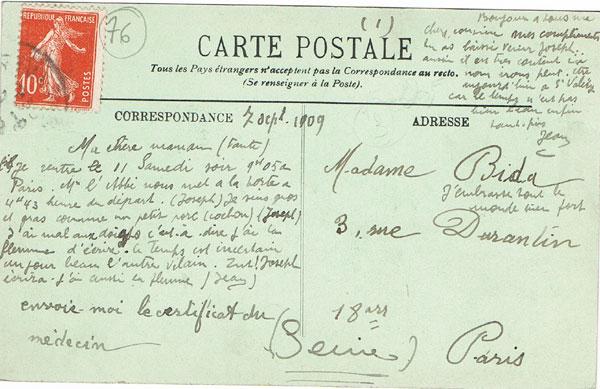 RÉPUBLIQUE FRANÇAISE
10c
POSTES
76
(1)
CARTE POSTALE
Tous les Pays étrangers n'acceptent pas la Correspondance au recto.
(Se renseigner à la Poste).
Bonjour à tous ma
chère cousine mes compliments
tu as laissé venir Joseph
aussi il est très content ici
nous nous peut être
aujourd'hui à St Valery
car le temps n'est pas
bien beau enfin
tant pis
Jean
CORRESPONDANCE
7 sept. 1909
ADRESSE
Ma chère maman (tante)
Je rentre le 11 Samedi soir 9h05 à
Paris. Mr l'Abbé nous met à la porte à
4h43 heure du départ. (Joseph) Je suis gros
et gras comme un petit porc (cochon) (Joseph)
J'ai mal aux doigts c'est-à-dire j'ai la
flemme d'écrire. Le temps est incertain
un jour beau l'autre vilain. Zut! Joseph
écrira. J'ai aussi la flemme (Jean)
envois-moi le certificat du
médecin
Madame Bida
J'embrasse tout le
monde bien fort
3, rue Durantin
18 arr
(Seine) Paris